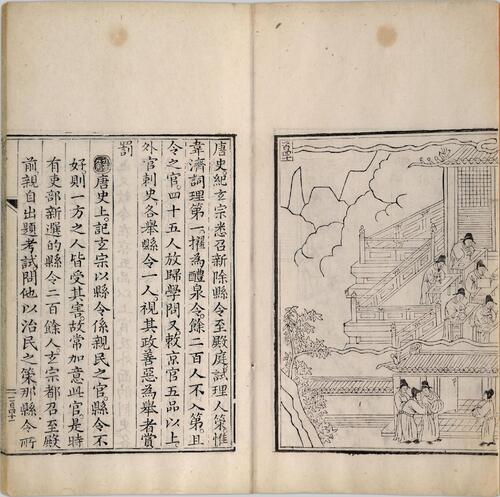 唐史紀玄宗悉召新除縣令至殿庭試理人策惟
韋濟詞理第一擢為醴泉令餘二百人不入第且
令之官四十五人放歸學問又敕京官五品以上
外官刺史各舉縣令一人視其政善惡為舉者賞
罰
解唐史上記玄宗以縣令係親民之官縣令不
好則一方之人皆受其害故常加意此官是時
有吏部新選的縣令二百餘人玄宗都召至殿
前親自出題考試問他以治民之策那縣令所